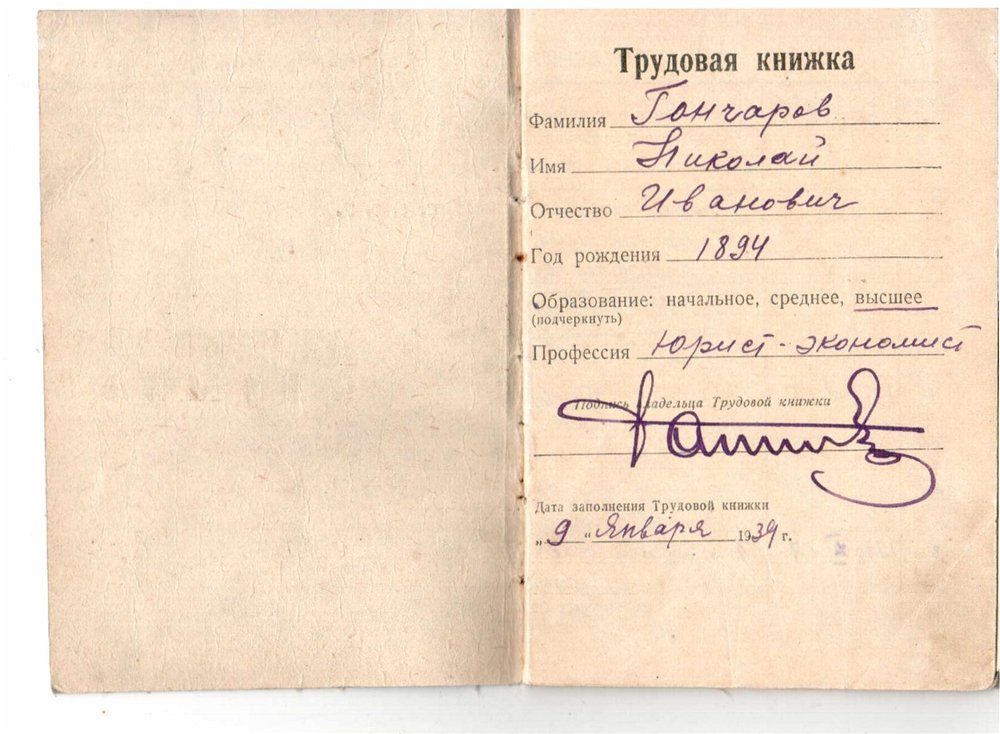 Трудовая книжка
Фамилия Гончаров
Имя Николай
Отчество Иванович
Год рождения 1894
Образование: начальное, среднее, высшее
(подчеркнуть)
Профессия Юрист-экономист
Подпись владельца Трудовой книжки
Дата заполнения Трудовой книжки
„9“ Января 1939 г.